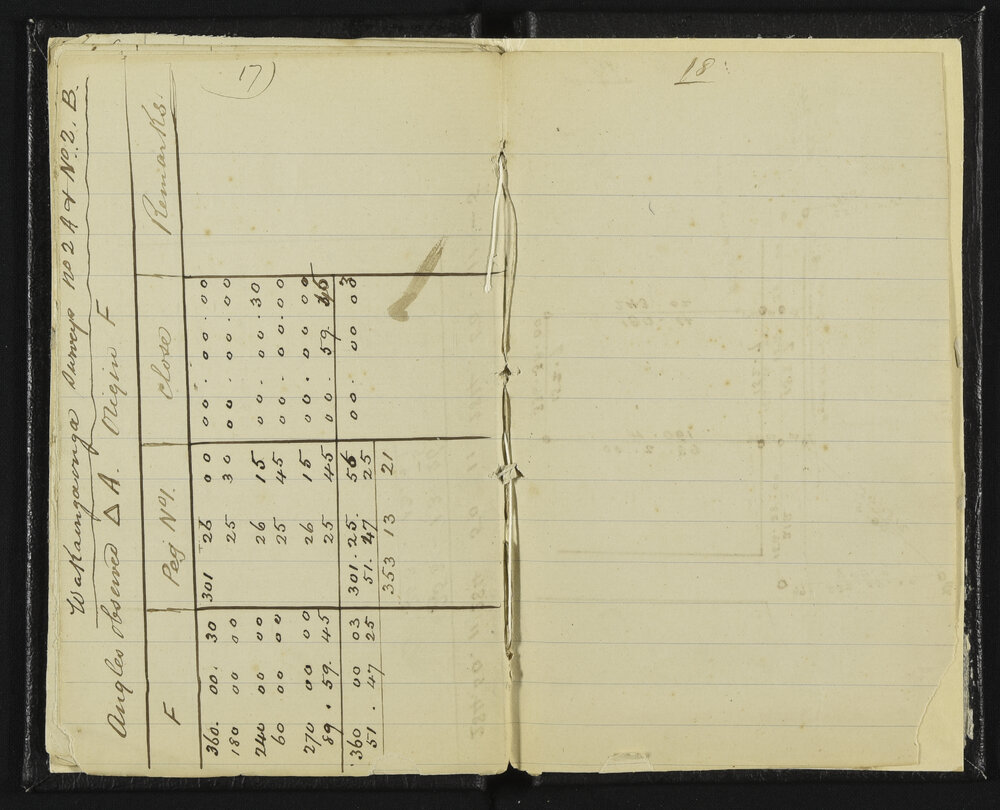 17)
18
Wakaingaonga Surveys No 2 A & No. 2. B.
Angles observed △ A. Origin F
F Peg No 1. Close Remarks.
360. 00. 30 301 26 00 00. 00. 00
180 00 00 25 30 00. 00. 00
240 00 00 26 15 00. 00. 30
60 00 00 25 45 00. 00. 00
270 00 00 26 15 00. 00. 00
89. 59. 45 25 45 00. 59. 45
360 00 03 301. 25. 56 00. 00 03
51. 47 25 51. 47 25
353 13 21